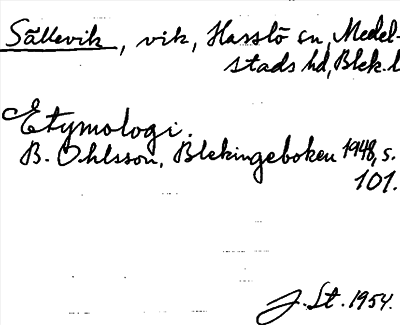 Sällevik, vik, Hasslö sn, Medel-
stads hd, Blek. l
Etymologi.
B. Ohlsson, Blekingeboken 1948, s.
101.
J. St. 1954.